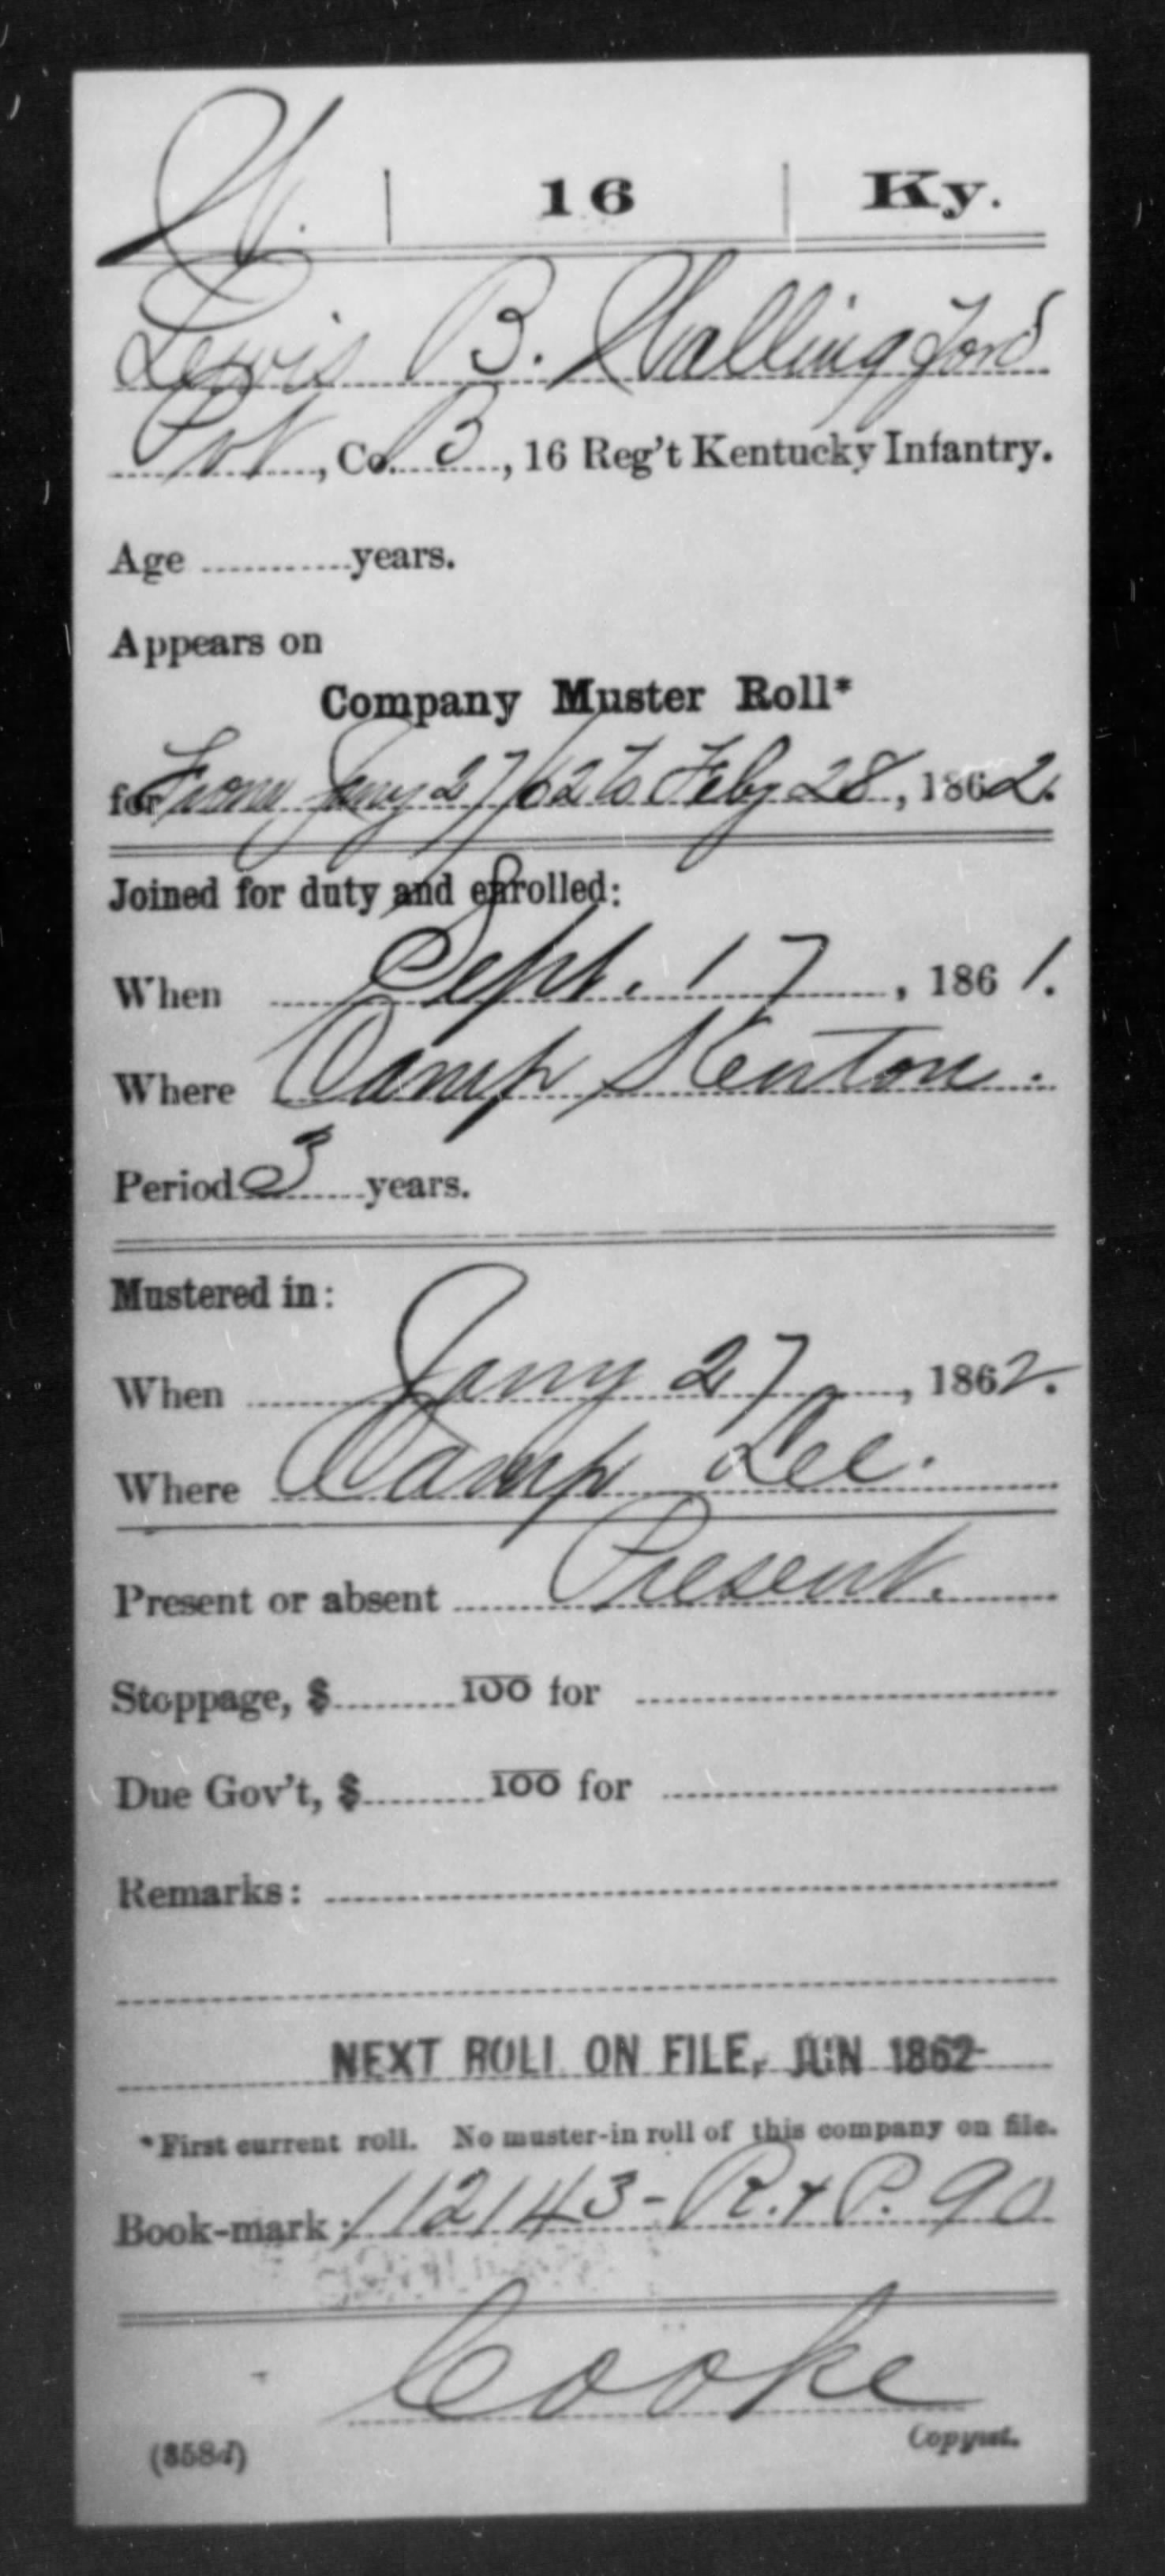 W. | 16 | Ky.
Lewis B. Wallingford
Pvt, Co. B, 16 Reg't Kentucky Infantry.
Age ........... years.
Appears on
Company Muster Roll*
for From Jany 27/62 to Feby 28, 1862.
Joined for duty and enrolled:
When Sept. 17, 1861.
Where Camp Kenton.
Period 3 years.
Mustered in:
When Jany 27, 1862.
Where Camp Lee.
Present or absent Present.
Stoppage, $ ......... 100 for
Due Gov't, $ ......... 100 for
Remarks:
NEXT ROLL ON FILE, JUN 1862
*First current roll. No muster-in roll of this company on file.
Book-mark: 112143-R. & P. 90
Cooke
Copyist.
(358d)